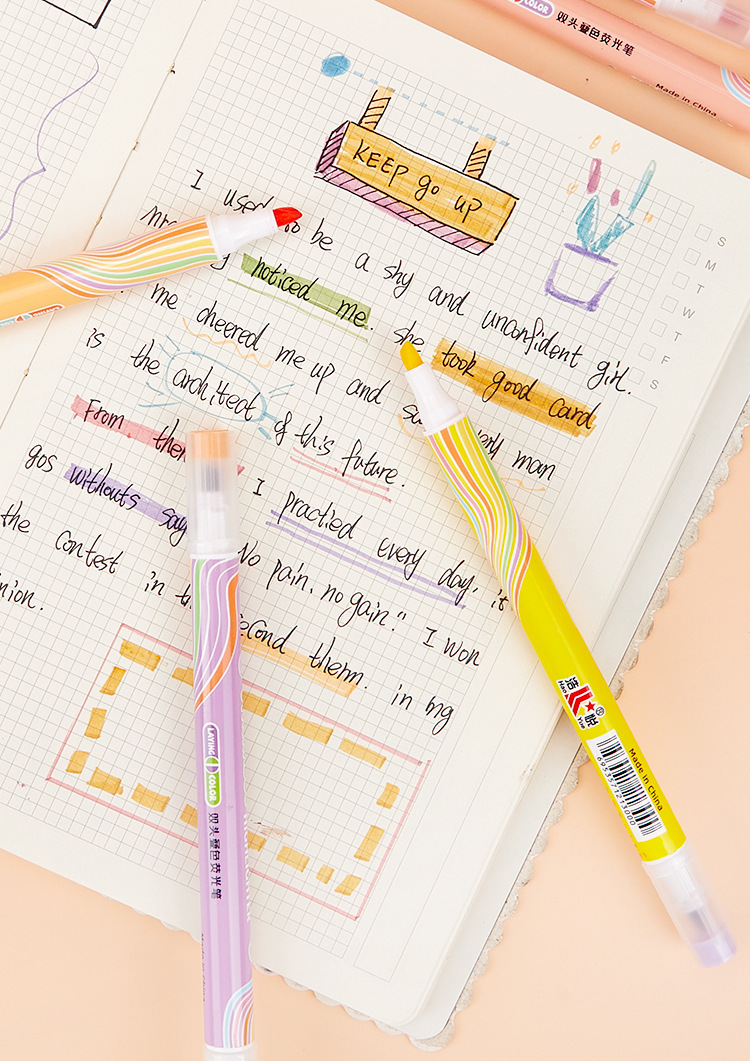 COLOR
双头叠色荧光笔
Made in China
KEEP go up
S
M
T
W
T
F
S
I used to be a shy and unconfident girl.
noticed me. she took good card
me cheered me up and man
is the architect of this future.
From
gos withouts say I practied every day, it
the contest in No pain, no gain." I won
second therm. in mg
nion.
LAYING COLOR
双头叠色荧光笔
浩悦
Hao Yue
®
Made in China
6953571213000